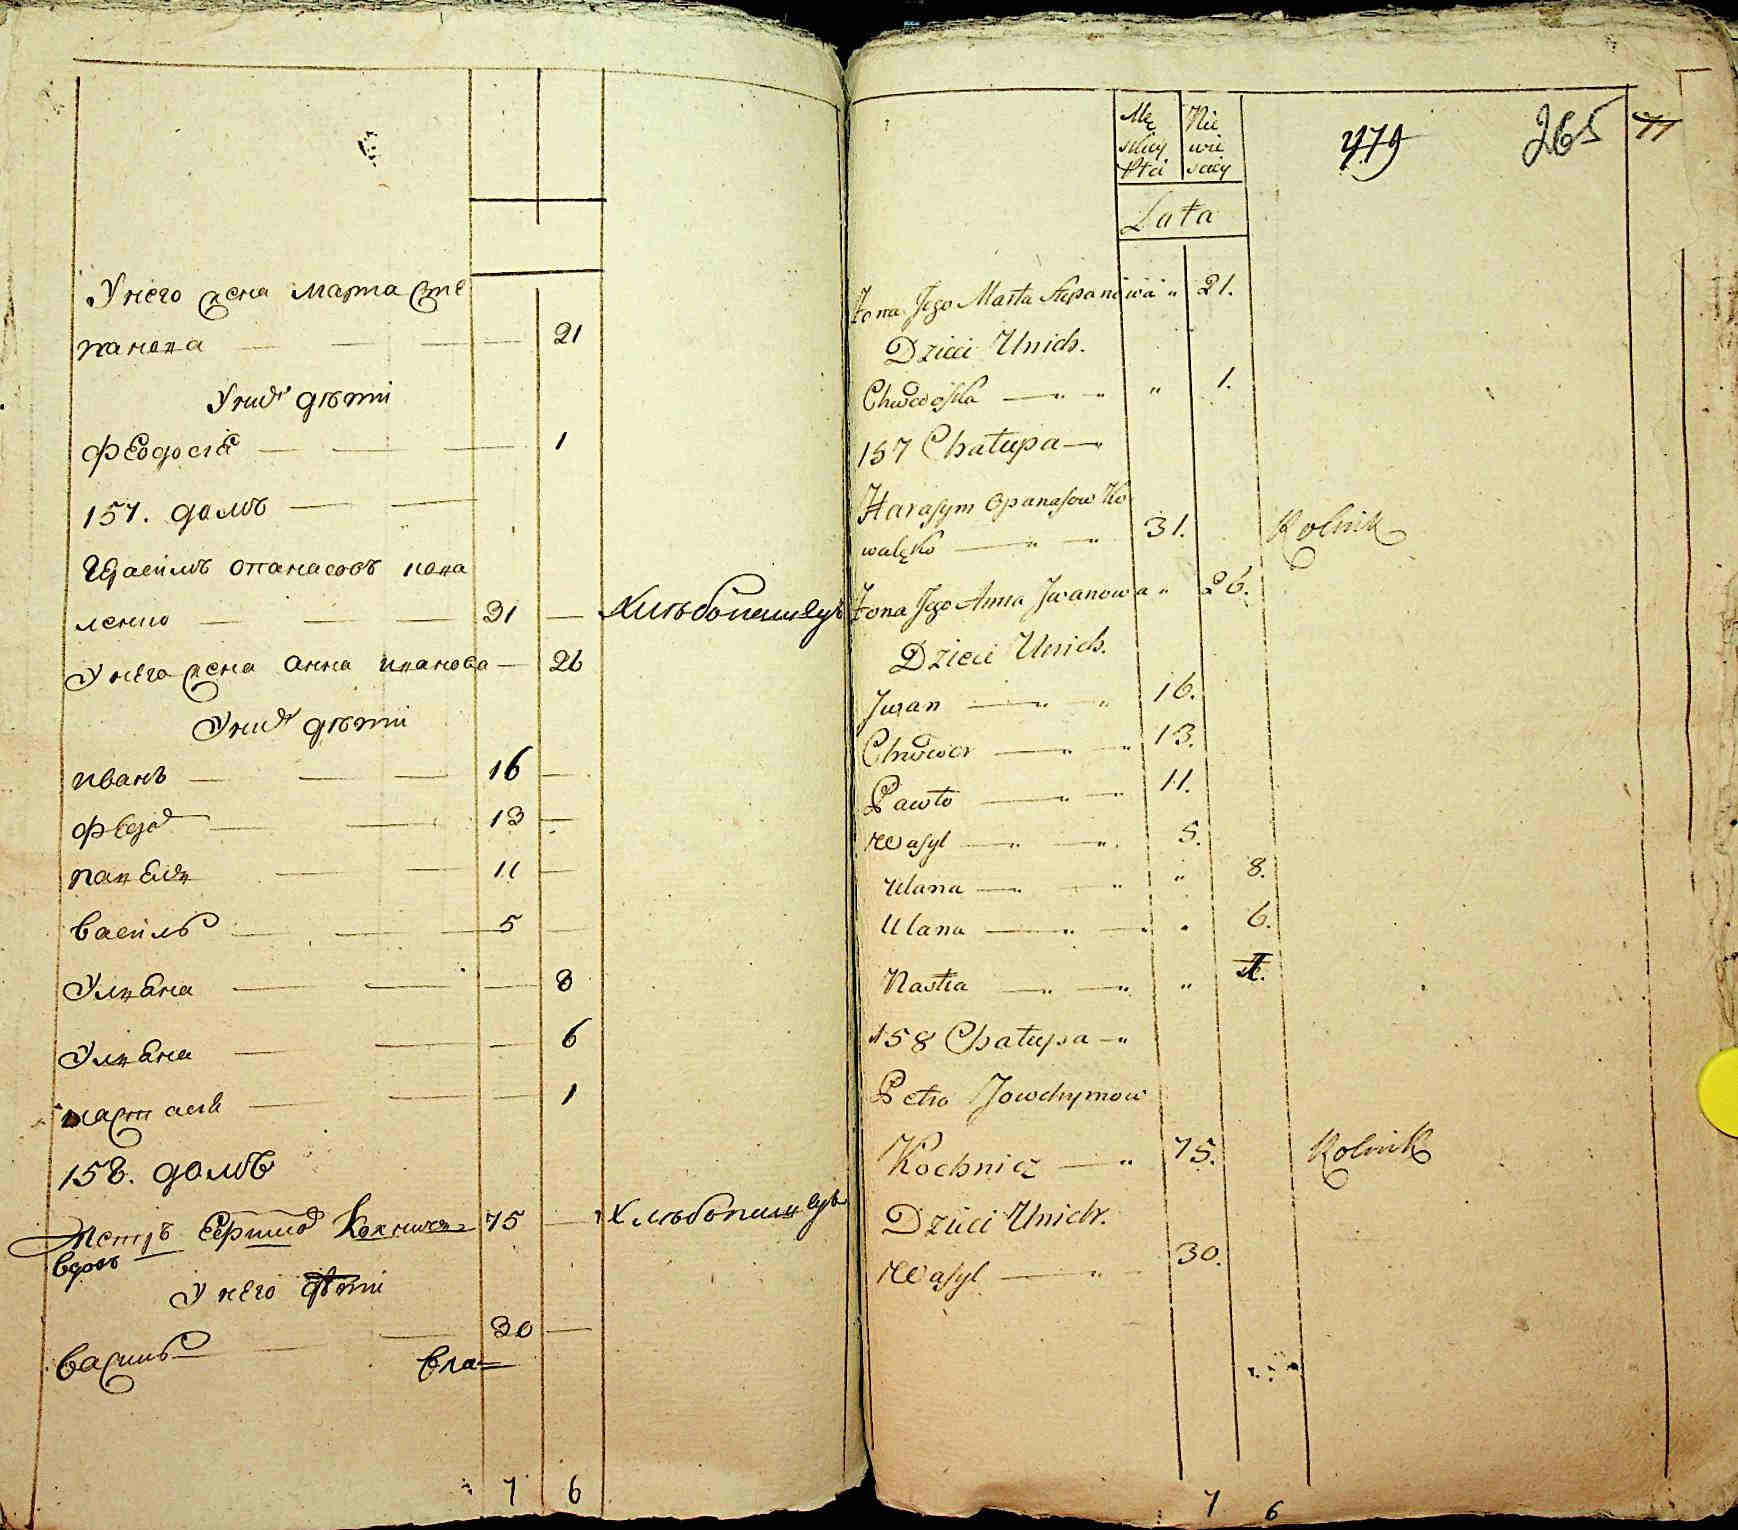 У него жена марта Сте
панова — — — — 21
У них дѣти
Феодосiя — — — 1
157. домъ — —
Гарасимъ опанасовъ кова
ленко — — — 31 — Хлѣбопашецъ
У него жена анна иванова — 26
У них дѣти
иванъ — — — 16 —
Федор — — — 13 —
павелъ — — — 11 —
василь — — — 5 —
Ульяна — — — 8
Ульяна — — — 6
настася — — — 1
158. домъ
Петръ Ефимов 75 — Хлѣбопашецъ
вдовъ
У него дѣти
василь — — 30 —
вла=
7 6
Mę Nie
skiey wie
Płci sciey
Łata
479 265 77
Żona Jego Marta Stepanowa „ 21.
Dzieci Unich.
Chwedoska — „ „ „ 1.
157 Chałupa — „
Harasym Opanasow Ko
walęko — „ „ 31. Rolnik
Żona Jego Anna Jwanowa „ 26.
Dzieci Unich.
Jwan — „ „ 16.
Chwedor — „ „ 13.
Pawło — „ „ 11.
Wasyl — „ — „ 5.
Ulana — „ — „ „ 8.
Ulana — „ — „ „ 6.
Nastia — „ — „ „ 1.
158 Chałupa — „
Petro Jowchymow
Kochnicz — „ 75. Rolnik
Dzieci Unich.
Wasyl — „ — 30.
7 6